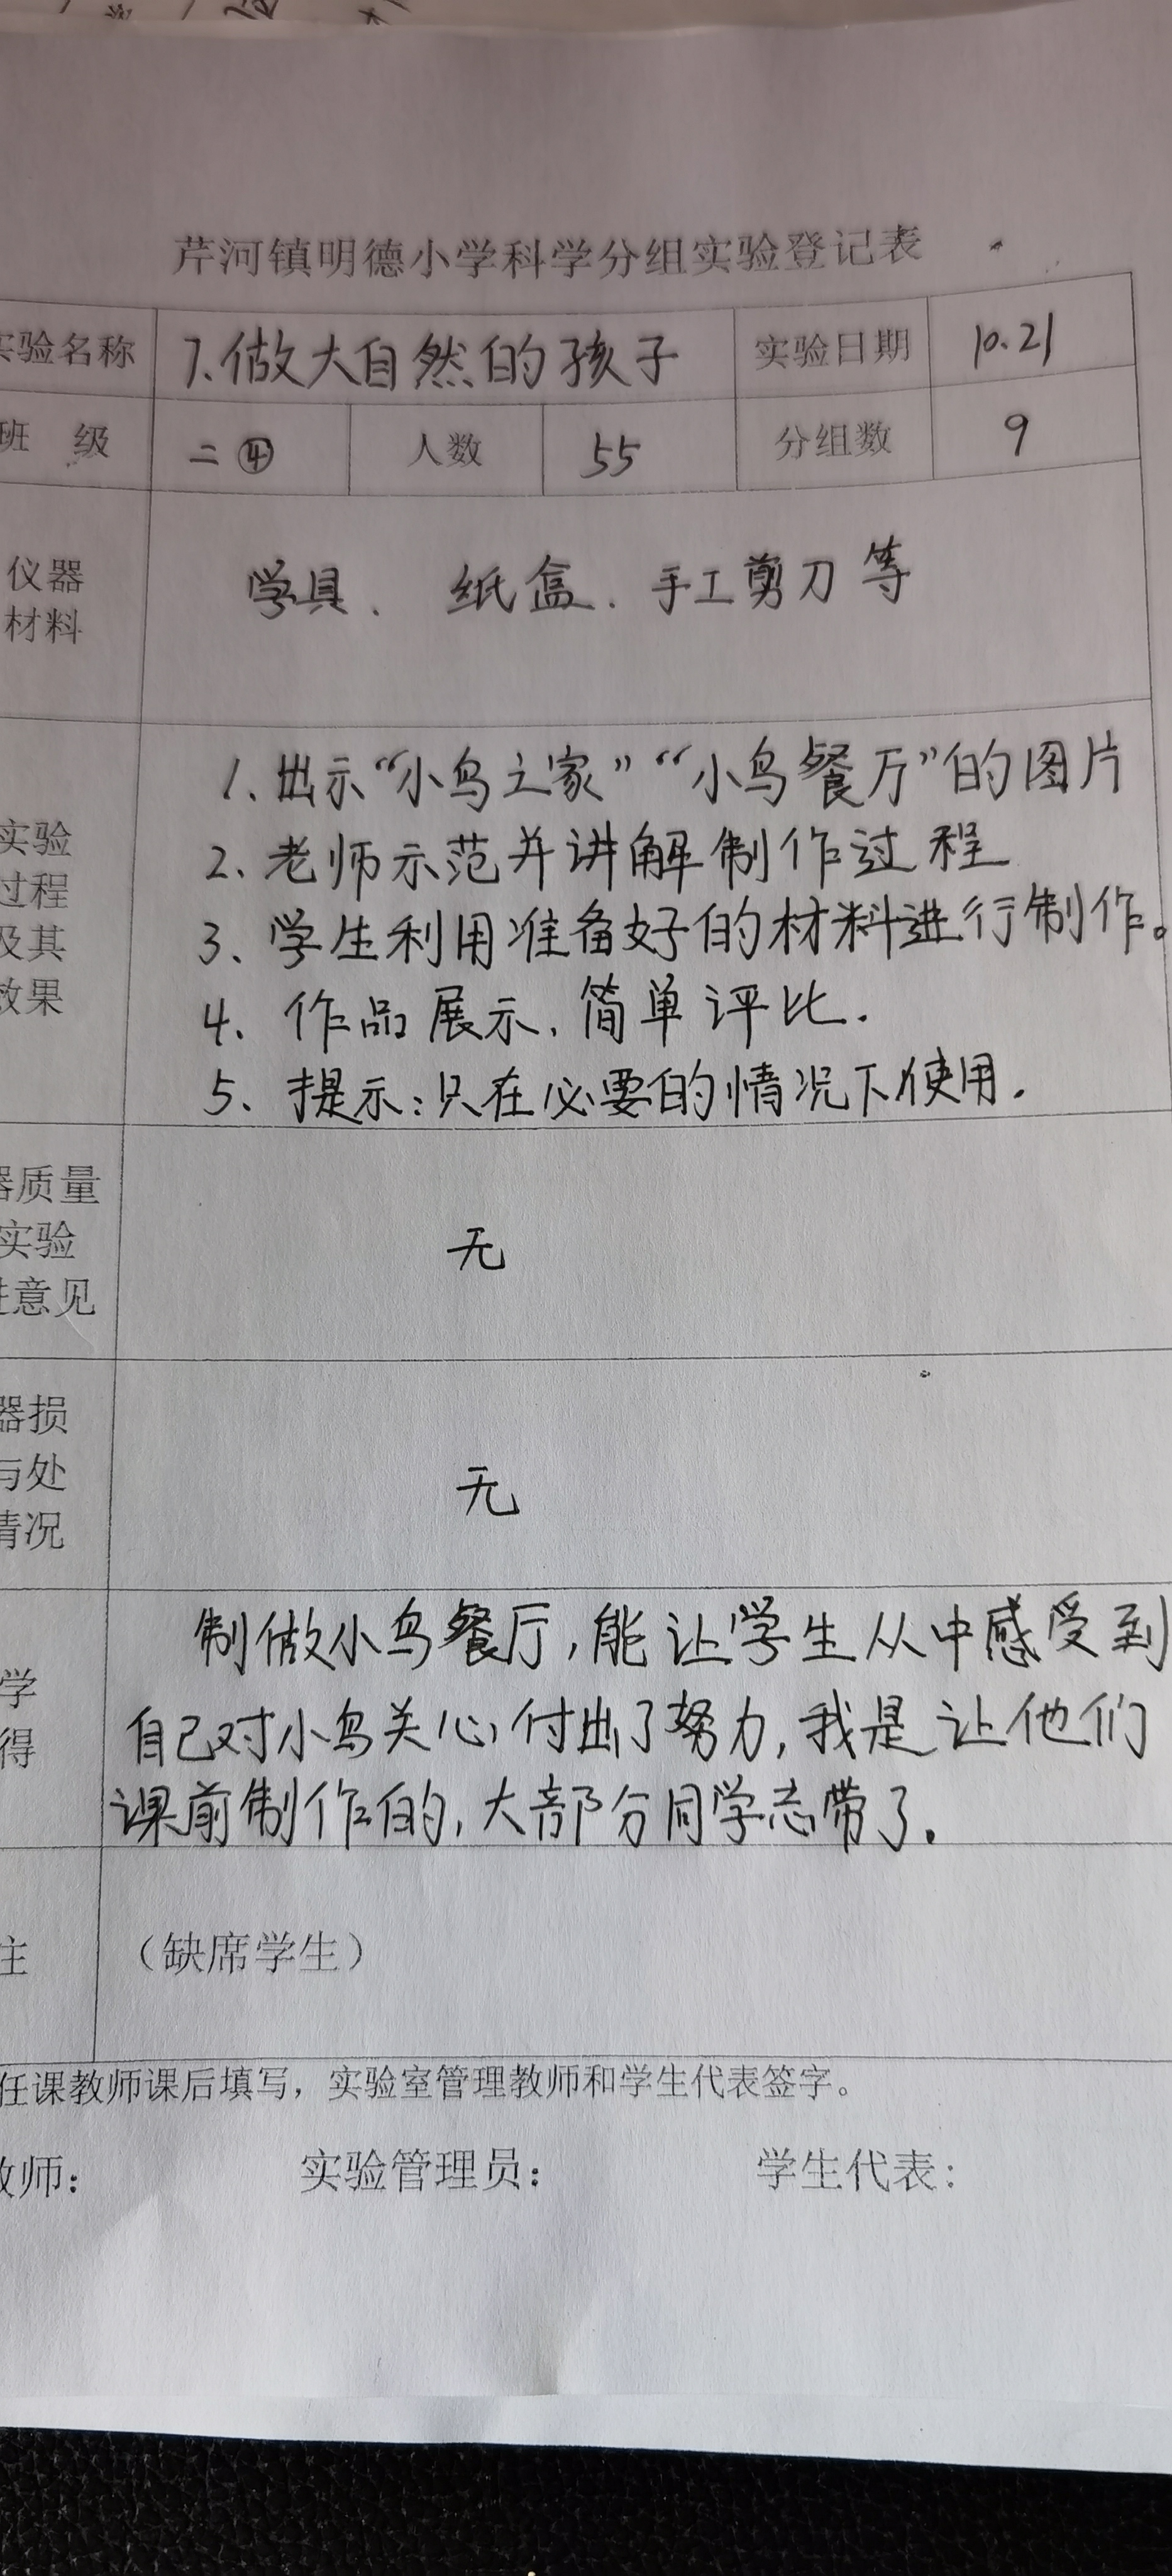 芹河镇明德小学科学分组实验登记表
实验名称 7.做大自然的孩子 实验日期 10.21
班 级 二④ 人数 55 分组数 9
仪器
材料
学具、纸盒、手工剪刀等
实验
过程
及其
效果
1、出示“小鸟之家”“小鸟餐厅”的图片
2、老师示范并讲解制作过程
3、学生利用准备好的材料进行制作。
4、作品展示、简单评比.
5、提示:只在必要的情况下使用.
器质量
实验
进意见
无
器损
与处
情况
无
学
得
制做小鸟餐厅,能让学生从中感受到
自己对小鸟关心,付出了努力,我是让他们
课前制作的,大部分同学志带了.
主
(缺席学生)
任课教师课后填写，实验室管理教师和学生代表签字。
教师: 实验管理员: 学生代表: